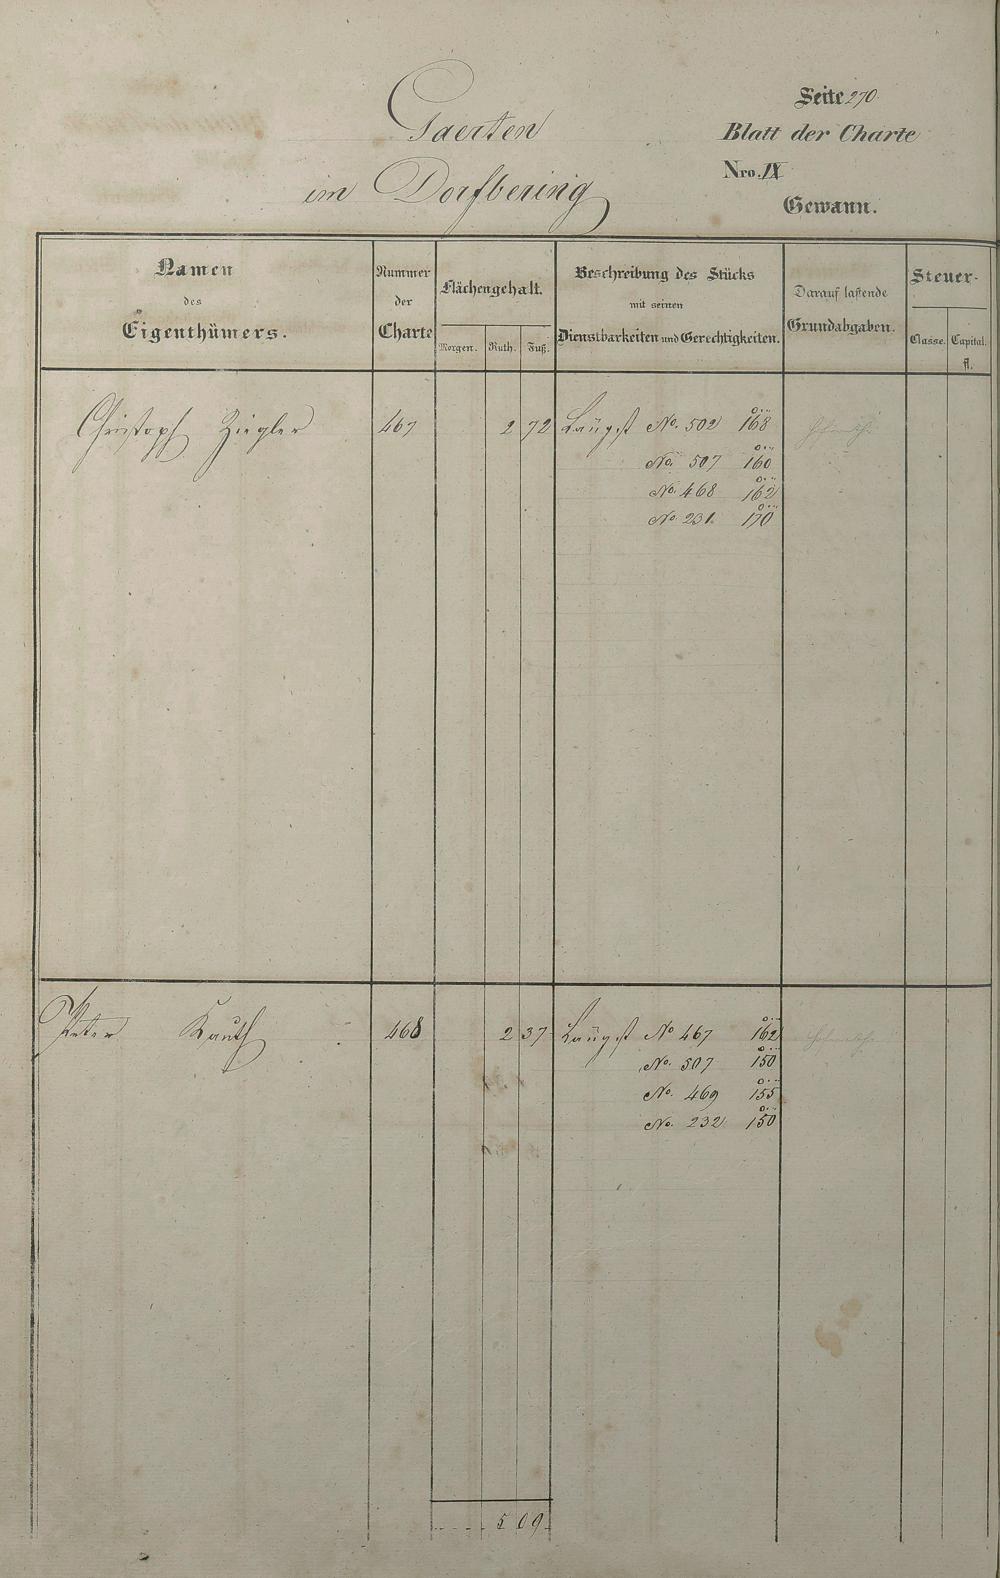 Gaerten
im Dorfbering
Seite 270.
Blatt der Charte
Nro. IX
Gewann.
Namen des Eigenthümers.
Nummer der Charte
Flächengehalt.
Morgen. Ruth. Fuß.
Beschreibung des Stücks mit seinen Dienstbarkeiten und Gerechtigkeiten.
Darauf lastende Grundabgaben.
Steuer-
Classe. Capital.
fl.
Christoph Ziegler 467 2 72 Längst No. 502 168
No. 507 160
No. 468 162
No. 231. 170
Peter Kauth 468 2 37 Längst No 467 162
No. 507 150
No. 469 155
No. 232 150
5 09